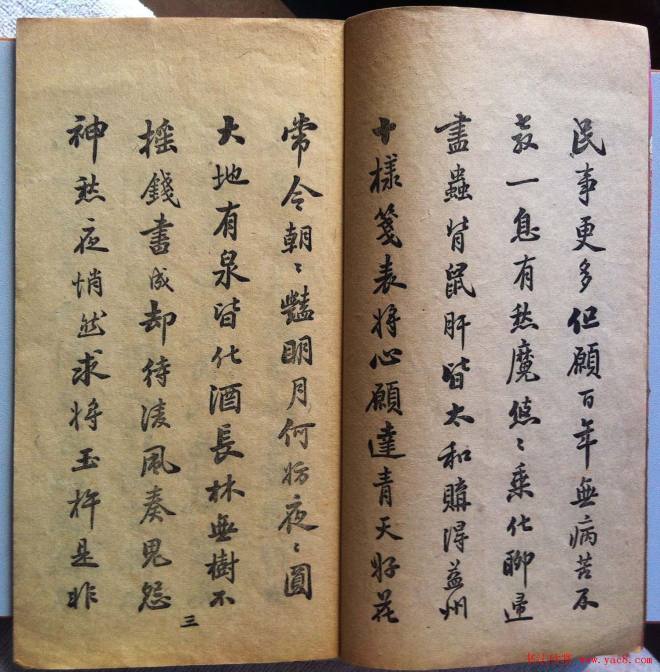 民事更多但願百年無病苦不
教一息有愁魔悠〻乘化聊歸
盡蟲臂鼠肝皆太和購得益州
十樣箋表將心願達青天好花
常令朝〻豔明月何妨夜〻圓
大地有泉皆化酒長林無樹不
搖錢書成却待凌風奏鬼怨
神愁夜悄然求將玉杵是非
三
书法欣赏 www.yac8.com